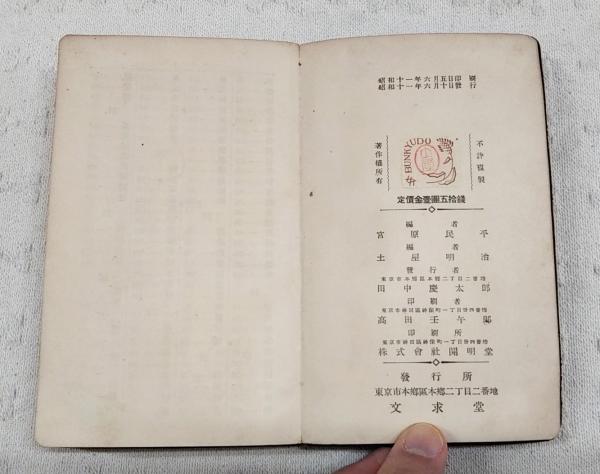 昭和十一年六月五日印刷
昭和十一年六月十日發行
不許複製
BUNKYUDO
著作權所有
定價金壹圓五拾錢
編者
宮原民平
編者
土屋明治
發行者
東京市本鄕區本鄕二丁目二番地
田中慶太郎
印刷者
東京市神田區神保町一丁目廿四番地
高田壬午郎
印刷所
東京市神田區神保町一丁目廿四番地
株式會社開明堂
發行所
東京市本鄕區本鄕二丁目二番地
文求堂